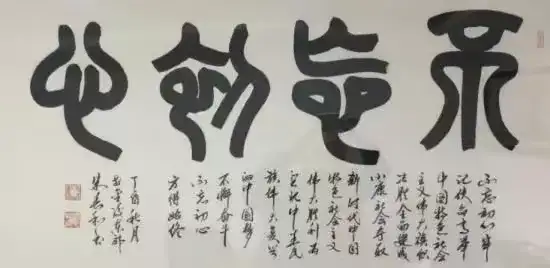 不忘初心
不忘初心牢
记使命高举
中国特色社会
主义伟大旗帜
决胜全面建成
小康社会夺取
新时代中国
特色社会主义
伟大胜利为
实现中华民
族伟大复兴
的中国梦
不懈奋斗
不忘初心
方得始终
丁酉秋月